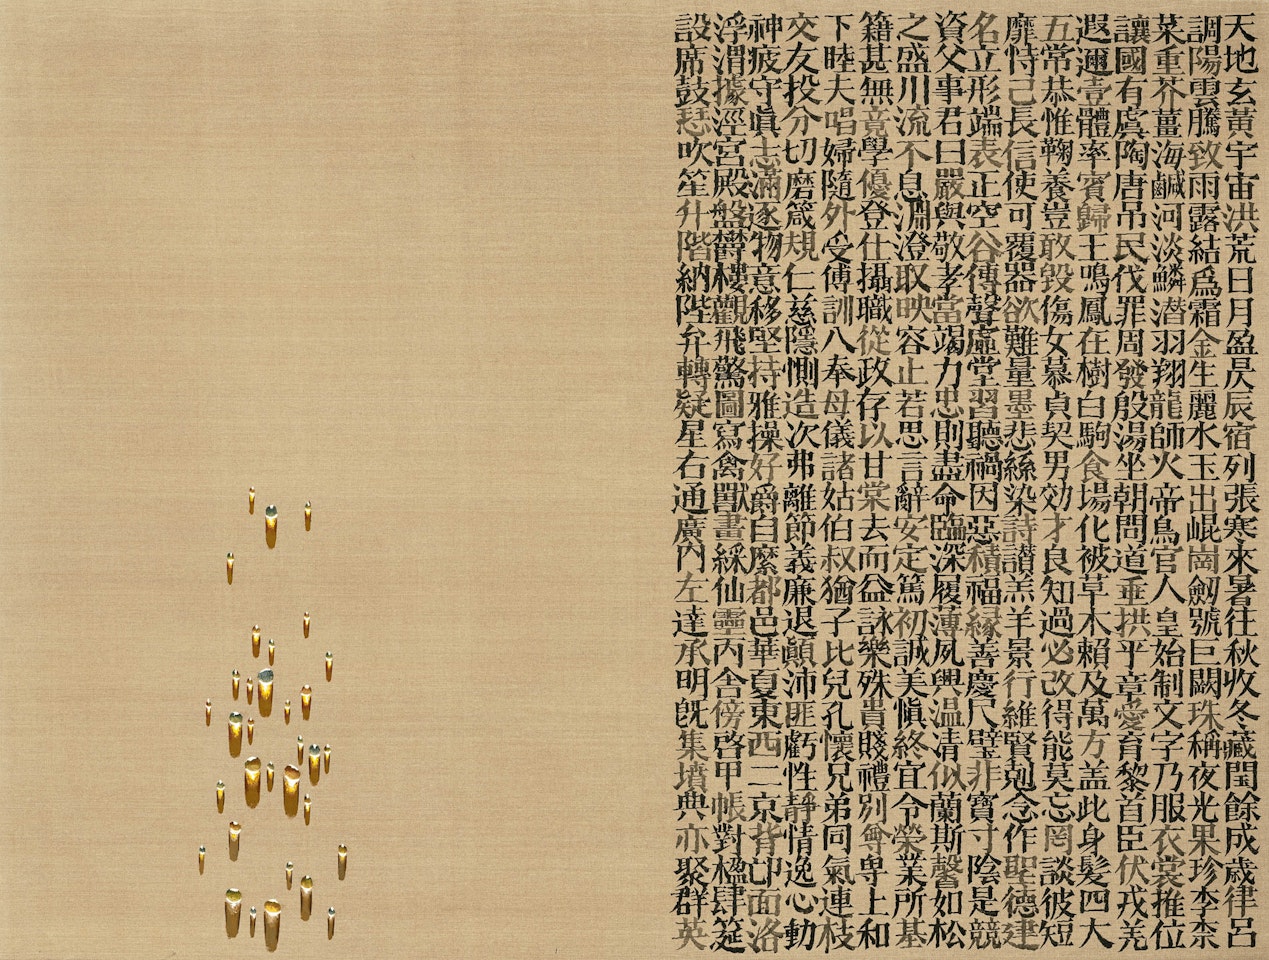 天地玄黃宇宙洪荒日月盈昃辰宿列張寒來暑往秋收冬藏閏餘成歲律呂
調陽雲騰致雨露結爲霜金生麗水玉出崐崗劒號巨闕珠稱夜光果珍李柰
菜重芥薑海鹹河淡鱗潛羽翔龍師火帝鳥官人皇始制文字乃服衣裳推位
讓國有虞陶唐吊民伐罪周發殷湯坐朝問道垂拱平章愛育黎首臣伏戎羌
遐邇壹體率賓歸王鳴鳳在樹白駒食場化被草木賴及萬方盖此身髮四大
五常恭惟鞠養豈敢毀傷女慕貞契男効才良知過必改得能莫忘罔談彼短
靡恃己長信使可覆器欲難量墨悲絲染詩讃羔羊景行維賢剋念作聖德建
名立形端表正空谷傳聲虛堂習聽禍因惡積福緣善慶尺璧非寶寸陰是競
資父事君曰嚴與敬孝當竭力忠則盡命臨深履薄夙興温凊似蘭斯馨如松
之盛川流不息淵澄取映容止若思言辭安定篤初誠美愼終宜令榮業所基
籍甚無竟學優登仕攝職從政存以甘棠去而益詠樂殊貴賤禮別尊卑上和
下睦夫唱婦隨外受傅訓入奉母儀諸姑伯叔猶子比兒孔懷兄弟同氣連枝
交友投分切磨箴規仁慈隱惻造次弗離節義廉退顚沛匪虧性靜情逸心動
神疲守眞志滿逐物意移堅持雅操好爵自縻都邑華夏東西二京背邙面洛
浮渭據涇宮殿盤鬱樓觀飛驚圖寫禽獸畫綵仙靈丙舍傍啓甲帳對楹肆筵
設席鼓瑟吹笙升階納陛弁轉疑星右通廣內左達承明旣集墳典亦聚群英